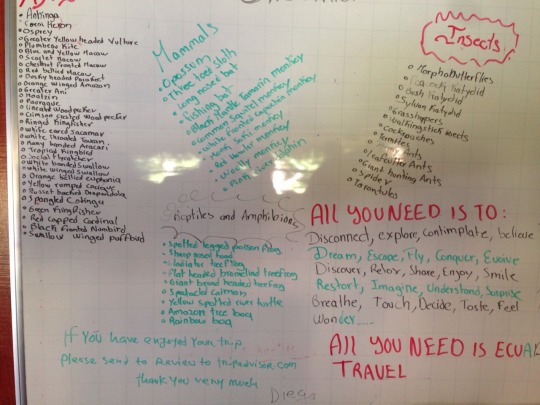 Anhinga
Heron
Osprey
Greater Yellow headed Vulture
Plumbeous Kite
Blue and Yellow Macaw
Scarlet Macaw
Chestnut fronted Macaw
Red bellied Macaw
Dusky headed Parakeet
Orange Winged Amazon
Greater Ani
Hoatzin
Pooraque
Woodpecker
Crimson crested Wood pecker
Ringed Kingfisher
White eared Jacamar
White throated Toucan
Many banded Aracari
Tropical Kingbird
Social flycatcher
White banded Swallow
White winged Swallow
Orange bellied euphonia
Yellow rumped Cacique
Russet backed Oropendola
Spangled Cotinga
Green Kingfisher
Red capped Cardinal
Black fronted Nunbird
Swallow winged puffbird
Mammals
Opossum
Three toed sloth
Long nosed bat
Fishing bat
Black Mantle Tamarin monkey
Common Squirrel monkey
White fronted capuchin monkey
monkey
Howler monkey
Woolly monkey
Pink dolphin
Reptiles and Amphibians
Spotted legged poison frog
Sharp nosed toad
Gladiator treefrog
Flat headed bromeliad treefrog
Giant broad headed treefrog
Spectacled caiman
Yellow spotted river turtle
Amazon tree boa
Rainbow boa
Insects
Morpho Butterflies
Peacock Katydid
Bush Katydid
Sylvan Katydid
Grasshoppers
Walkingstick insects
Cockroaches
Termites
Ants
Leafcutter Ants
Giant hunting Ants
Spider
Tarantulas
ALL YOU NEED IS TO:
Disconnect, explore, contimplate, believe
Dream, Escape, Fly, Conquer, Evolve
Discover, Relax, Share, Enjoy, Smile
Restort, Imagine, Understand, Surprise
Breathe, Touch, Decide, Taste, Feel
Wonder.....
ALL YOU NEED IS ECUA
TRAVEL
If you have enjoyed your trip
please send to Review to tripadvisor.com
thank you very much
Diego